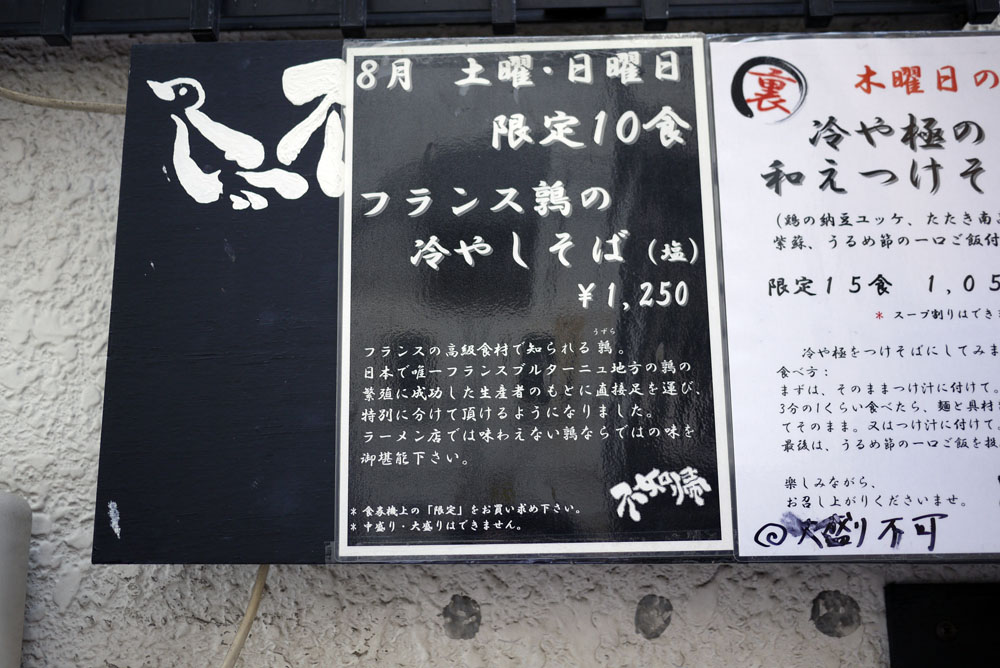 不
8月 土曜・日曜日
限定10食
フランス鶉の
冷やしそば(塩)
¥1,250
うずら
フランスの高級食材で知られる鶉。
日本で唯一フランスブルターニュ地方の鶉の
繁殖に成功した生産者のもとに直接足を運び、
特別に分けて頂けるようになりました。
ラーメン店では味わえない鶉ならではの味を
御堪能下さい。
不如帰
*食券機上の「限定」をお買い求め下さい。
*中盛り・大盛りはできません。
裏
木曜日の
冷や極の
和えつけそ
(鶏の納豆ユッケ、たたき南
紫蘇、うるめ節の一口ご飯付
限定15食 1,05
*スープ割りはでき
冷や極をつけそばにしてみま
食べ方:
まずは、そのままつけ汁に付けて。
3分の1くらい食べたら、麺と具材
てそのまま。又はつけ汁に付けて。
最後は、うるめ節の一口ご飯を投
楽しみながら、
お召し上がりくださいませ。
大盛り不可